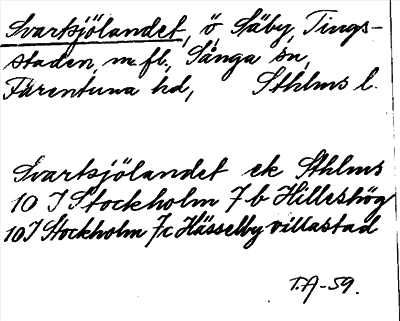 Svartsjölandet, ö, Säby, Tings-
staden, m. fl., Sånga sn,
Färentuna hd, Sthlms l.
Svartsjölandet ek Sthlms
10 I Stockholm 7b Hilleshög
10 I Stockholm 7c Hässelby villastad
T.A-59.